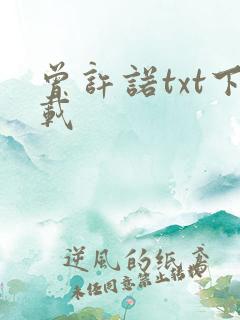 曾許諾txt下
載
逆風的紙鳶
未经同意禁止转载